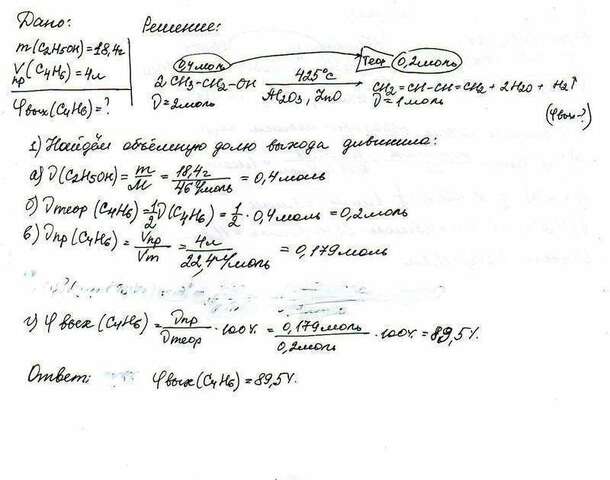 Дано:
m(C2H5OH)=18,4г
Vпр(C4H6)=4л
φвых(C4H6)=?
Решение:
0,4моль теор 0,2моль
2CH3-CH2-OH 425°C Al2O3, ZnO → CH2=CH-CH=CH2 + 2H2O + H2↑
ν=2моль ν=1моль
(φвых-?)
1) Найдём объёмную долю выхода дивинила:
а) ν(C2H5OH)=m/M=18,4г/46г/моль=0,4моль
б) νтеор(C4H6)=1/2ν(C4H6)=1/2·0,4моль=0,2моль
в) νпр(C4H6)=Vпр/Vm=4л/22,4л/моль=0,179моль
г) φвых(C4H6)=νпр/νтеор·100%=0,179моль/0,2моль·100%=89,5%
Ответ: φвых(C4H6)=89,5%.